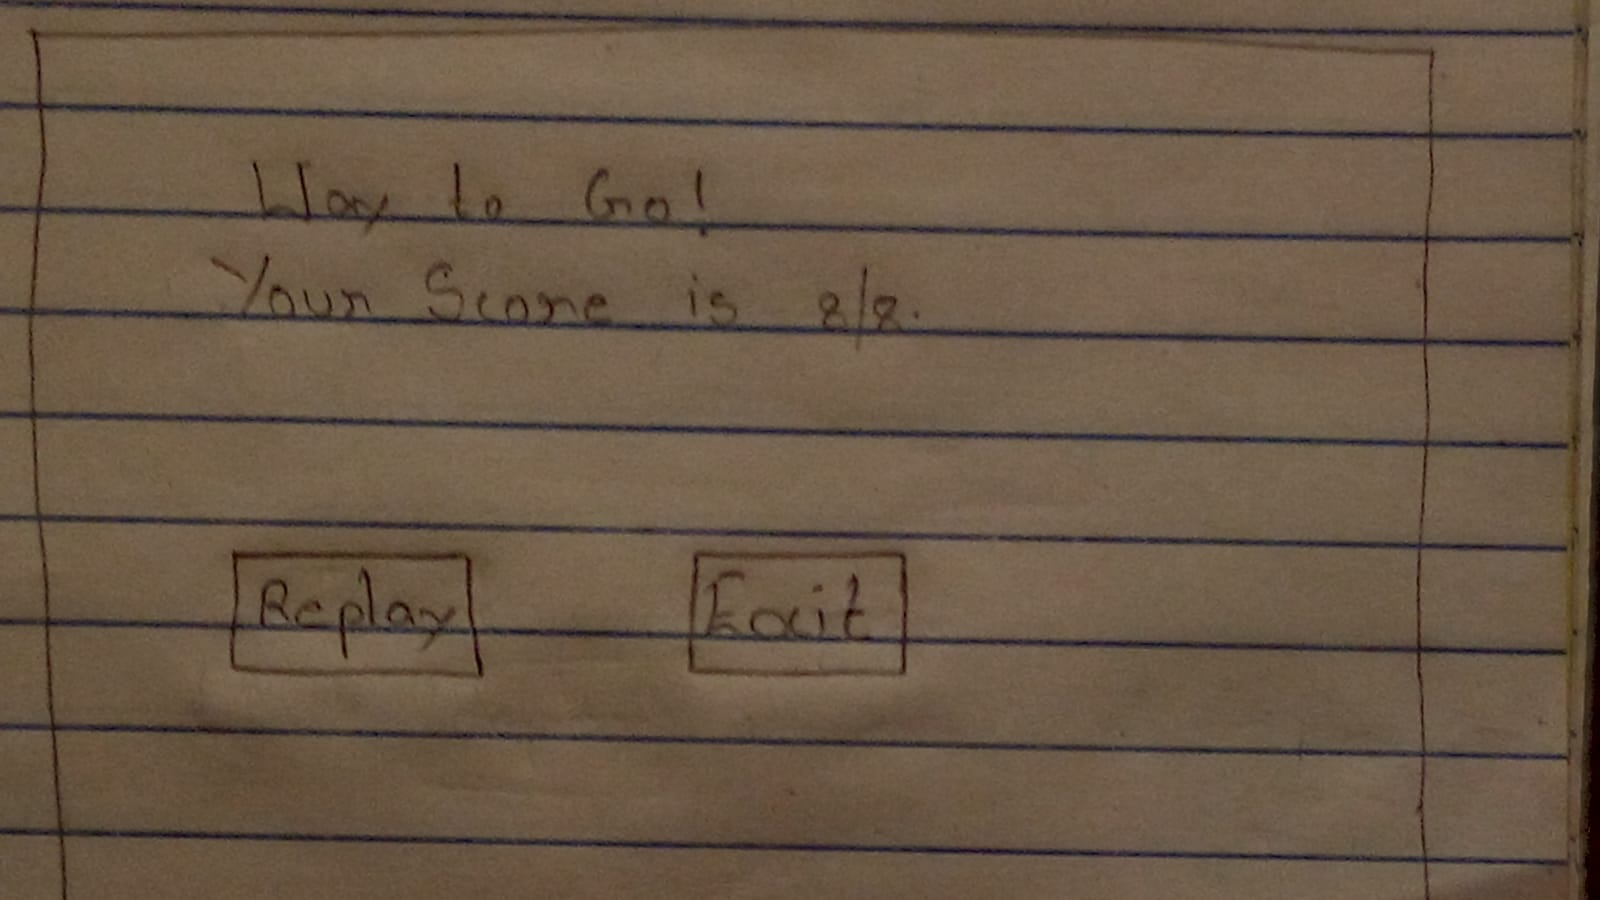 Way to Go!
Your Score is 2/2.
Replay
Exit